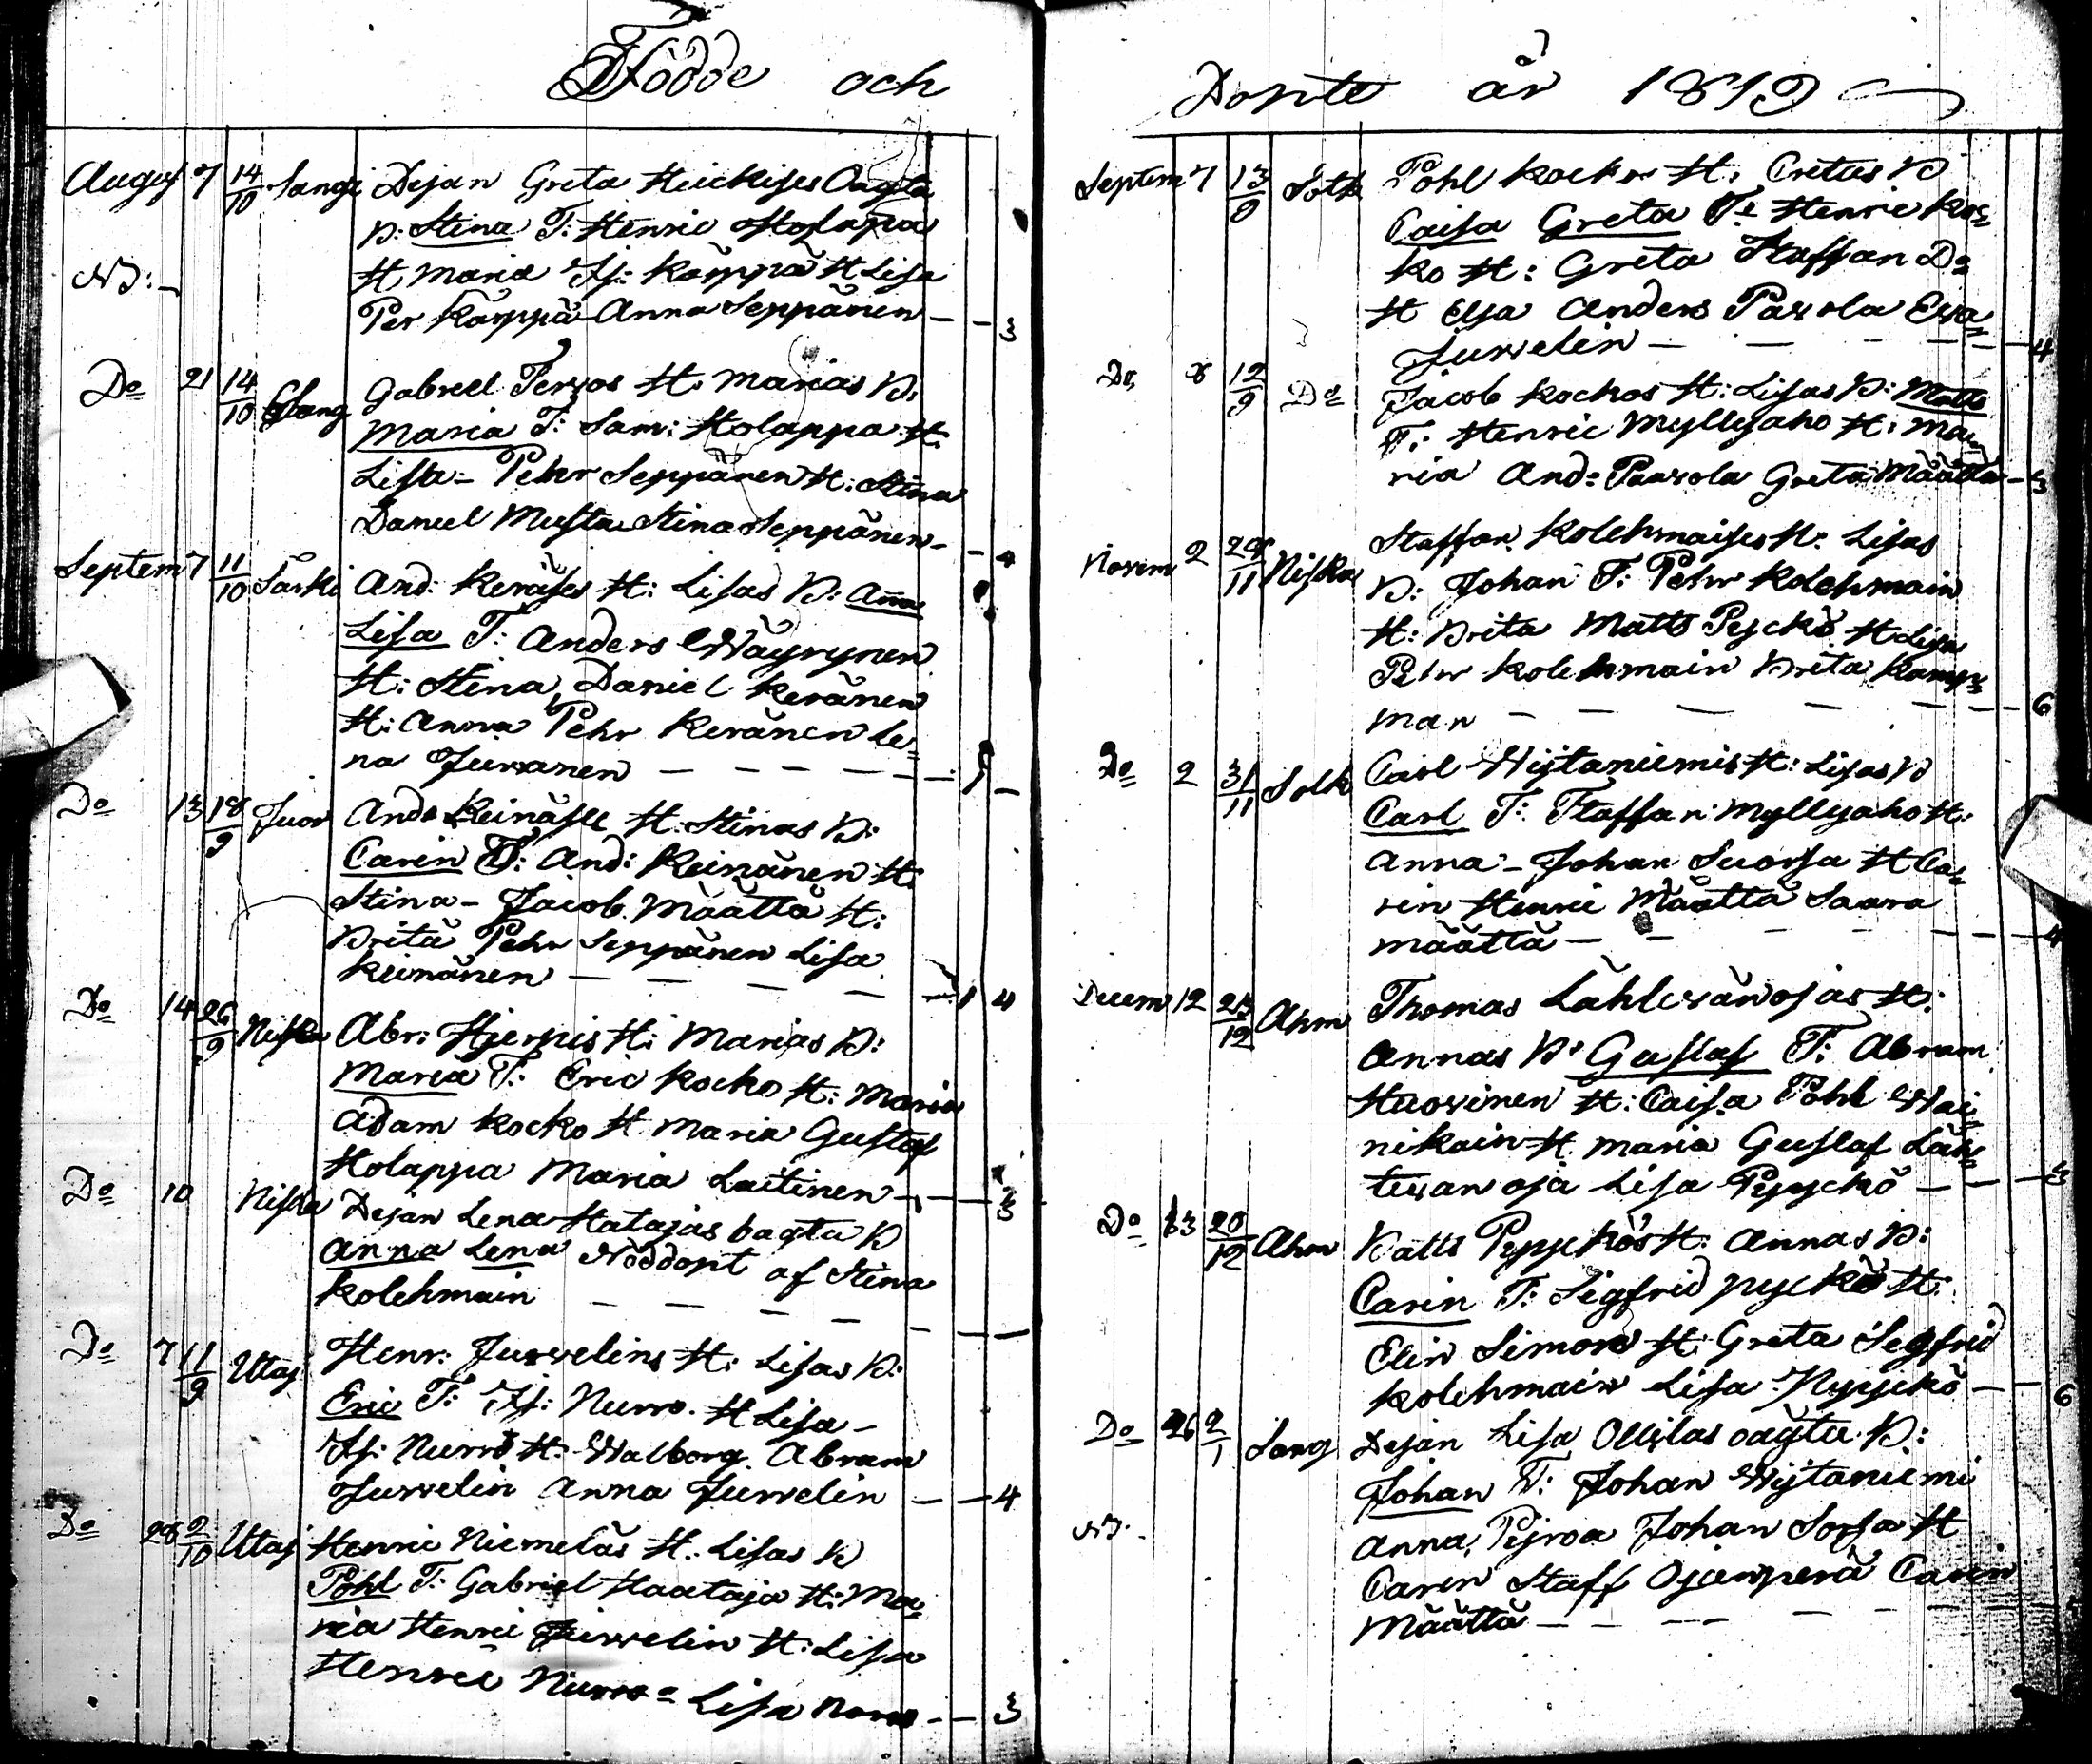 Födde och
August 7 14/10 Sangi Dejan Greta Heickises Oagta
B: Stina T: Henric Holapa
H Maria Is: Käppä H Lisa
NB:
Per Käppä Anna Seppänen — 3
Do 21 14/10 Sang Gabriel Terwos H: Marias B:
Maria T: Sam: Holappa H:
Lisa - Pehr Seppänen H: Stina
Daniel Musta Stina Seppänen - 4
Septem 7 11/10 Särki And: Keräses H: Lisas B: Anna
Lisa T: Anders Wäyrynen
H: Stina Daniel Keränen
H: Anna Pehr Keränen Le=
na Juwanen —
Do 13 18/9 Juor And: Keinäse H: Stinas B:
Carin T: And: Keinänen H:
Stina - Jacob Määttä H:
Brita Pehr Seppänen Lisa
Keinänen — 4
Do 14 26/9 Niska Abr: Hjerpis H: Marias B:
Maria T: Eric Kocko H: Maria
Adam Kocko H Maria Gustaf
Holappa Maria Laitinen — 3
Do 10 Niska Dejan Lena Hatajas oagta B
Anna Lena Nöddopt af Stina
Kolehmain —
Do 7 11/9 Utaj Henr: Juwelins H: Lisas B:
Eric T: Is: Nurro H Lisa -
Is: Nurro H: Walborg. Abram
Juwelin Anna Juwelin — 4
Do 28 2/10 Utaj Henric Niemeläs H: Lisas B
Pohl T: Gabriel Haataja H: Ma=
ria Henric Juwelin H: Lisa
Henric Nurro = Lisa — 3
Döpte år 1819
Septem 7 13/9 Sotk Pohl Kockos H: Cretas B
Caisa Greta T: Henric Koc=
ko H: Greta Staffan Do
H Elsa Anders Pavola Eva
Juwelin — 4
Do 8 12/9 Do Jacob Kockos H: Lisas B: Matts
T: Henric Myllyaho H: Ma=
ria And: Paavola Greta Määttä - 3
Novem 2 28/11 Niska Staffan Kolehmaises H: Lisas
B: Johan T: Pehr Kolehmain
H: Brita Matts Pyckö H Lisa
Pehr Kolehmain Brita Kamp=
man — 6
Do 2 31/11 Sotk Carl Wijtaniemis H: Lisas B
Carl T: Staffan Myllyaho H:
Anna - Johan Suorsa H Ca=
rin Henric Määttä Saara
Määttä — 4
Decem 12 25/12 Ahm Thomas Lähtevänojas H:
Annas B: Gustaf T: Abram
Huovinen H: Caisa Pohl Wai=
nikain H Maria Gustaf Läh=
tevanoja Lisa Pyyckö — 3
Do 13 20/12 Ahm Matts Pyyckös H: Annas B:
Carin T: Sigfrid pyckö H:
Elin Simon H: Greta Sigfrid
Kolehmain Lisa Pyyckö — 6
Do 26 2/1 Sang Dejan Lisa Ollilas oagta B:
Johan T: Johan Wijtaniemi
NB:
Anna, Johan Sorsa H
Caren Staff Ojanperä Carin
Määttä —